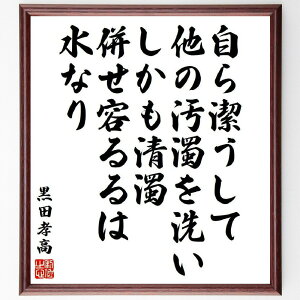 自ら潔うして
他の汚濁を洗い
しかも清濁
併せ容るるは
水なり
黒田孝高